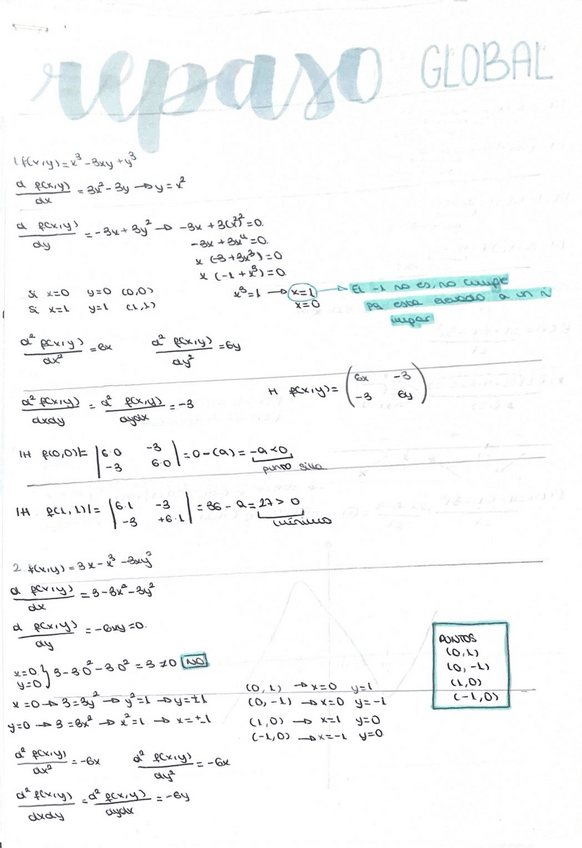 repaso GLOBAL
1. f(x,y)=x³-3xy+y³
d f(x,y)/dx = 3x²-3y → y=x²
d f(x,y)/dy = -3x+3y² → -3x+3(x²)²=0.
-3x+3x⁴=0.
x(-3+3x³)=0
x(-1+x³)=0
Si x=0 y=0 (0,0) x³=1 → x=1 → El -1 no es, no cumple
Si x=1 y=1 (1,1) x=0 pq está elevado a un nº
impar
d² f(x,y)/dx² = 6x d² f(x,y)/dy² = 6y
d² f(x,y)/dxdy = d² f(x,y)/dydx = -3 H f(x,y) = (6x -3
-3 6y)
|H f(0,0)| = |6·0 -3
-3 6·0| = 0-(9) = -9<0
punto silla
|H f(1,1)| = |6·1 -3
-3 +6·1| = 36-9 = 27>0
mínimo
2. f(x,y)=3x-x³-3xy²
d f(x,y)/dx = 3-3x²-3y²
d f(x,y)/dy = -6xy=0.
x=0
y=0 } 3-3·0²-3·0²=3≠0 NO
x=0 → 3=3y² → y²=1 → y=±1
y=0 → 3=3x² → x²=1 → x=±1
(0,1) → x=0 y=1
(0,-1) → x=0 y=-1
(1,0) → x=1 y=0
(-1,0) → x=-1 y=0
PUNTOS
(0,1)
(0,-1)
(1,0)
(-1,0)
d² f(x,y)/dx² = -6x d² f(x,y)/dy² = -6x
d² f(x,y)/dxdy = d² f(x,y)/dydx = -6y